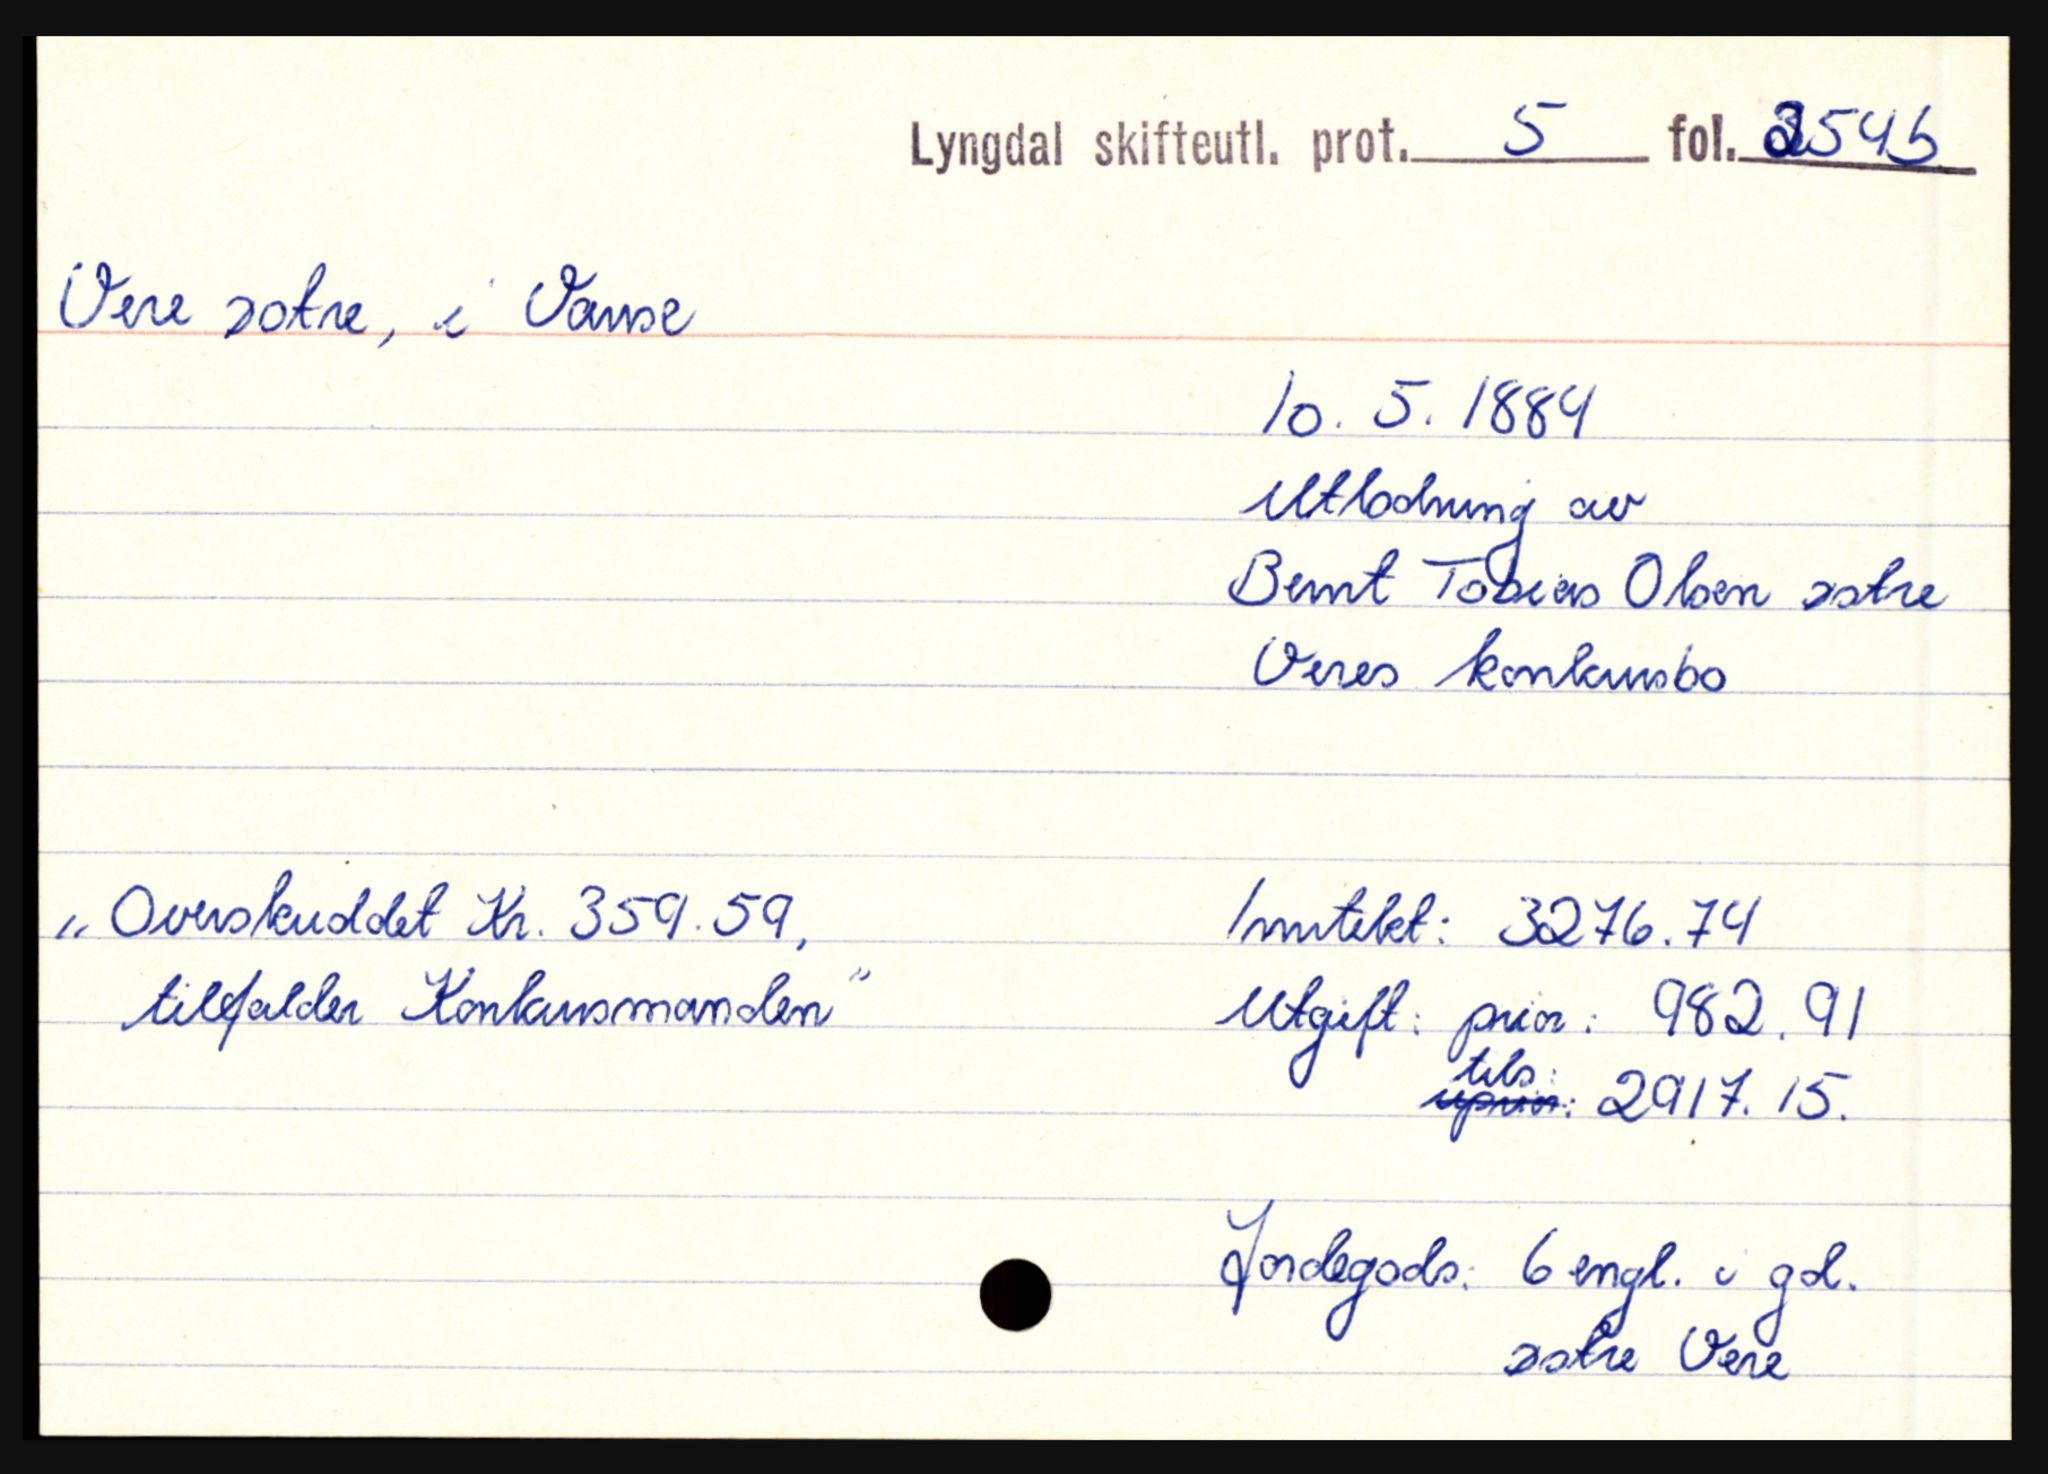 Lyngdal skifteutl. prot. 5 fol. 254b
Vere østre, i Vanse
10. 5. 1884
Utlodning av
Bernt Tobias Olsen østre
Veres konkursbo
„Overskuddet Kr. 359.59,
tilfalder Konkursmanden"
Inntekt: 3276.74
Utgift: prior: 982.91
tils:
uprior: 2917.15.
Jordegods: 6 engl. i gd.
østre Vere